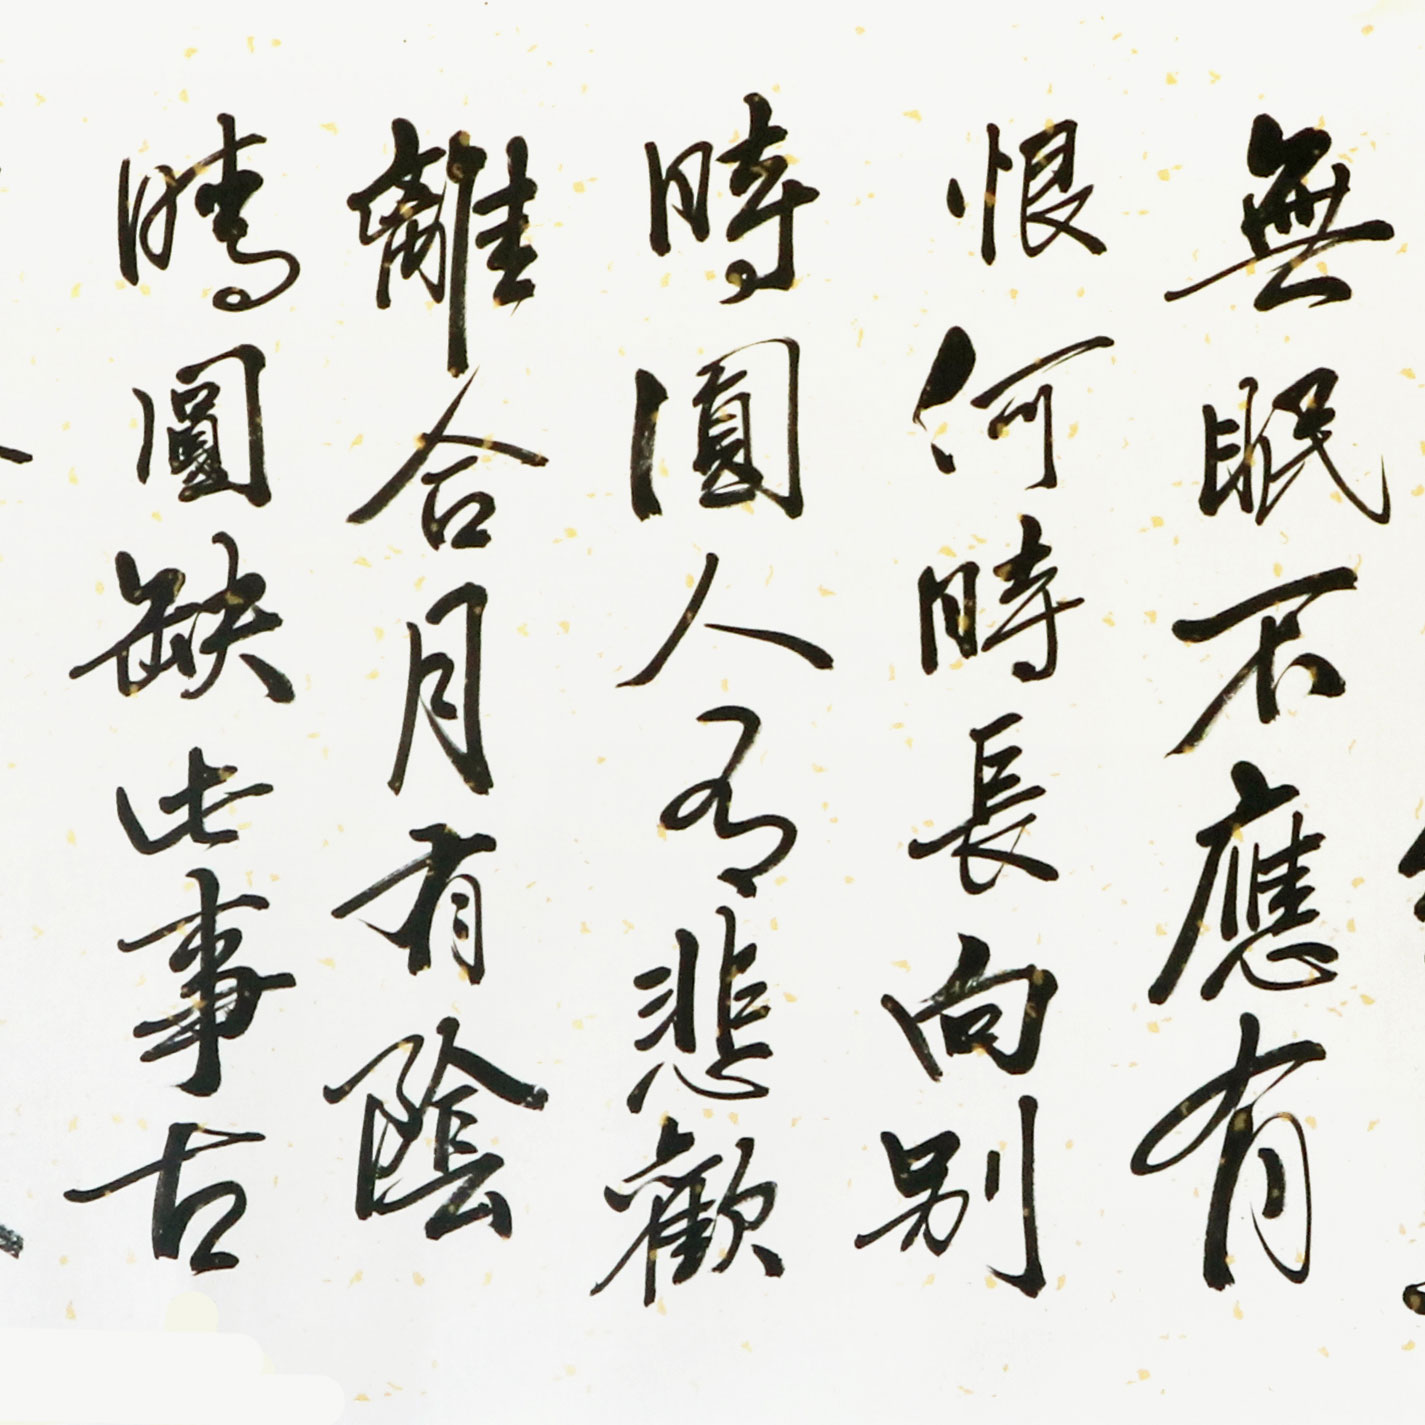 無眠不應有
恨何時長向別
時圓人有悲歡
離合月有陰
晴圓缺此事古